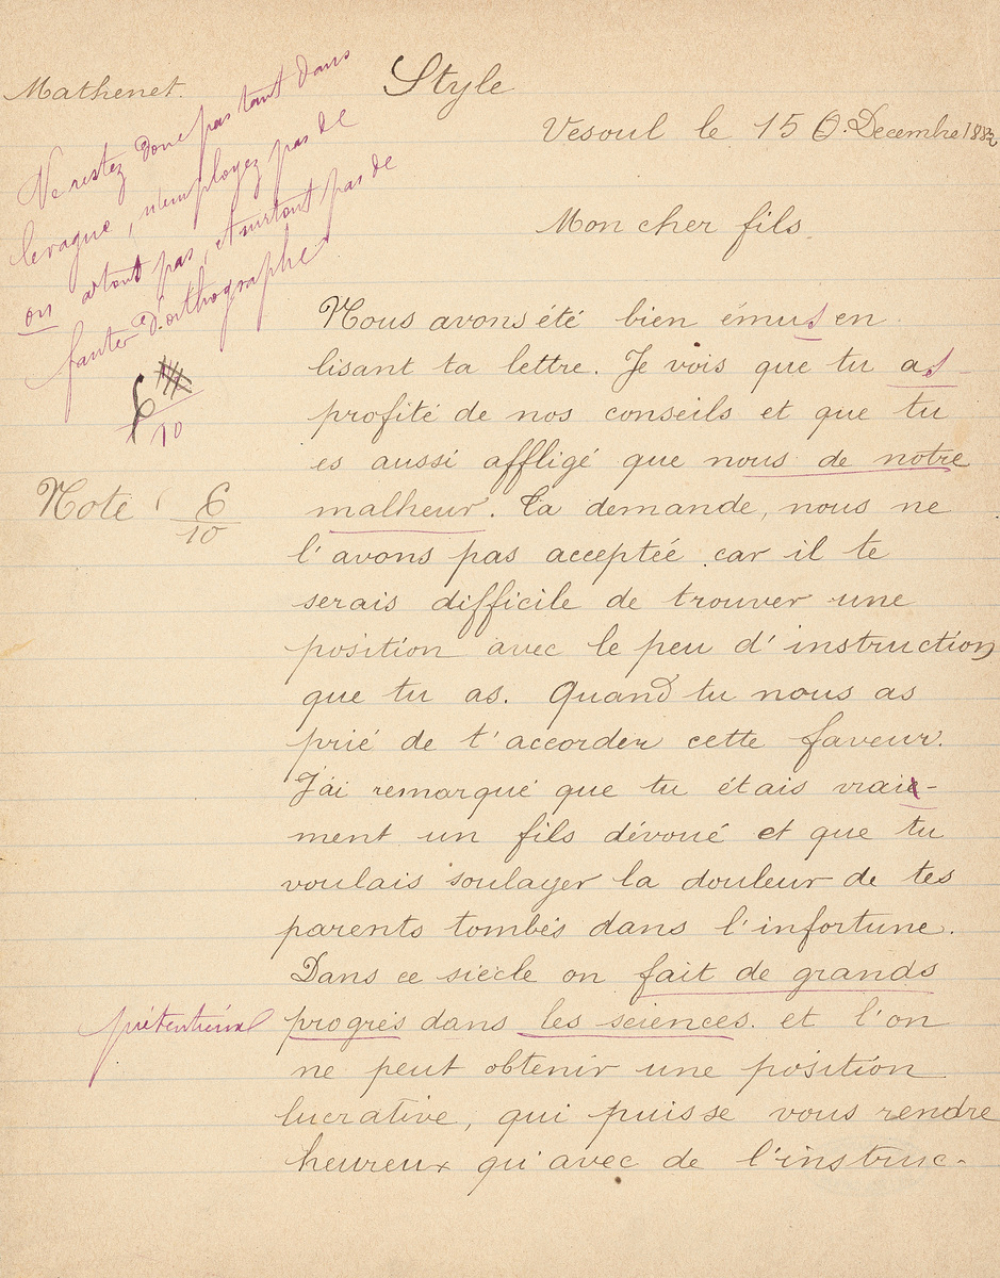 Mathenet.
Style
Vesoul le 15 Decembre 188
Ne restez donc pas tant dans
le vague, n'employez pas de
on surtout pas, et surtout pas de
fautes d'orthographe
6
10
Note : 6
10
Mon cher fils.
Nous avons été bien émus en
lisant ta lettre. Je vois que tu as
profité de nos conseils et que tu
es aussi affligé que nous de notre
malheur. Ta demande, nous ne
l'avons pas acceptée car il te
serais difficile de trouver une
position avec le peu d'instruction
que tu as. Quand tu nous as
prié de t'accorder cette faveur.
J'ai remarqué que tu étais vraie-
ment un fils dévoué et que tu
voulais soulager la douleur de tes
parents tombés dans l'infortune.
Dans ce siècle on fait de grands
prétentieux
progrès dans les sciences. et l'on
ne peut obtenir une position
lucrative, qui puisse vous rendre
heureux qu'avec de l'instruc-